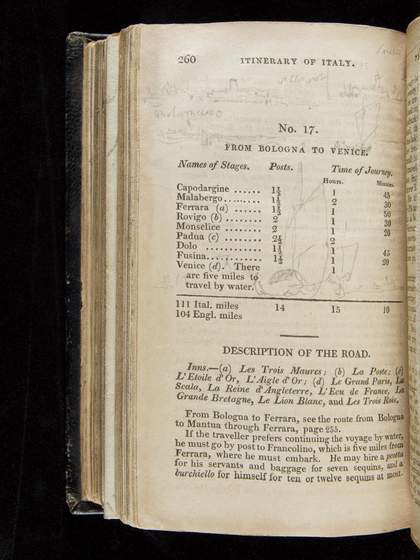 260 ITINERARY OF ITALY.
No. 17.
FROM BOLOGNA TO VENICE.
Names of Stages. Posts. Time of Journey.
Hours. Minutes.
Capodargine ...... 1½ 1 45
Malabergo ........ 1½ 2 30
Ferrara (a) ...... 1½ 1 50
Rovigo (b) ........ 2 1 30
Monselice ........ 2 1 20
Padua (c) ........ 2
Dolo .............. 1½ 1 45
Fusina ............ 1½ 1 20
Venice (d). There 1
are five miles to
travel by water.
111 Ital. miles 14 15 10
104 Engl. miles
DESCRIPTION OF THE ROAD.
Inns.—(a) Les Trois Maures; (b) La Poste; (c)
L'Etoile d'Or, L'Aigle d'Or; (d) Le Grand Paris, La
Scala, La Reine d'Angleterre, L'Ecu de France, La
Grande Bretagne, Le Lion Blanc, and Les Trois Rois.
From Bologna to Ferrara, see the route from Bologna
to Mantua through Ferrara, page 255.
If the traveller prefers continuing the voyage by water,
he must go by post to Francolino, which is five miles from
Ferrara, where he must embark. He may hire a peotta
for his servants and baggage for seven sequins, and a
burchiello for himself for ten or twelve sequins at most.